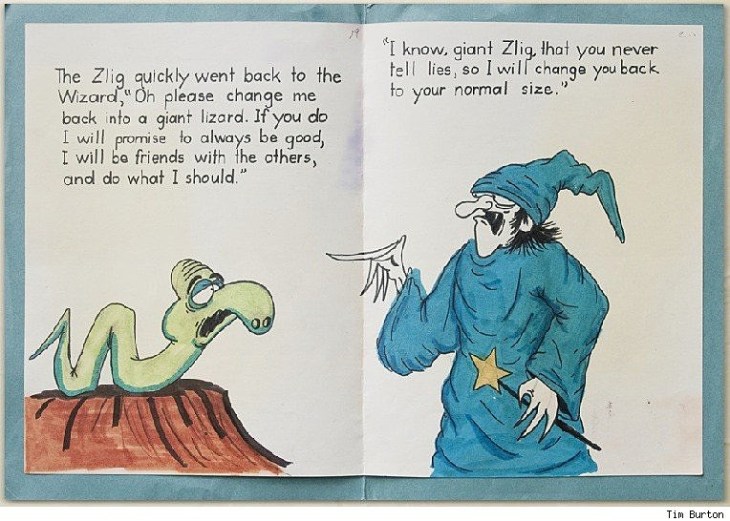 The Zlig quickly went back to the
Wizard, "Oh please change me
back into a giant lizard. If you do
I will promise to always be good,
I will be friends with the others,
and do what I should."
"I know, giant Zlig, that you never
tell lies, so I will change you back
to your normal size."
Tim Burton